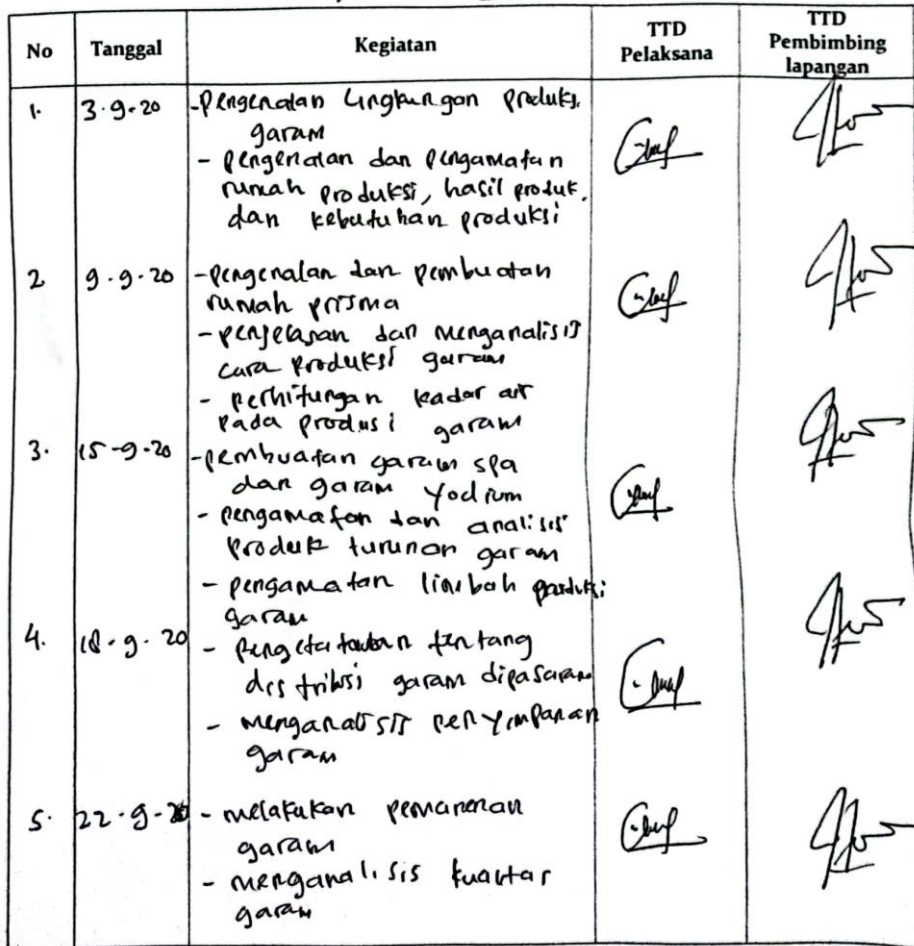 No Tanggal Kegiatan TTD Pelaksana TTD Pembimbing lapangan
1. 3-9-20 - Pengenalan Lingkungan produksi
garam
- pengenalan dan pengamatan
rumah produksi, hasil produk,
dan kebutuhan produksi
2 9-9-20 - pengenalan dan pembuatan
rumah prisma
- penjelasan dan menganalisis
cara produksi garam
- perhitungan kadar air
pada produsi garam
3. 15-9-20 - pembuatan garam spa
dan garam Yodium
- pengamatan dan analisis
produk turunan garam
- pengamatan limbah produksi
garam
4. 18-9-20 - tentang
distribusi garam dipasaran
- menganalisis penyimpanan
garam
5. 22-9-20 - melakukan pemanenan
garam
- menganalisis kualitas
garam